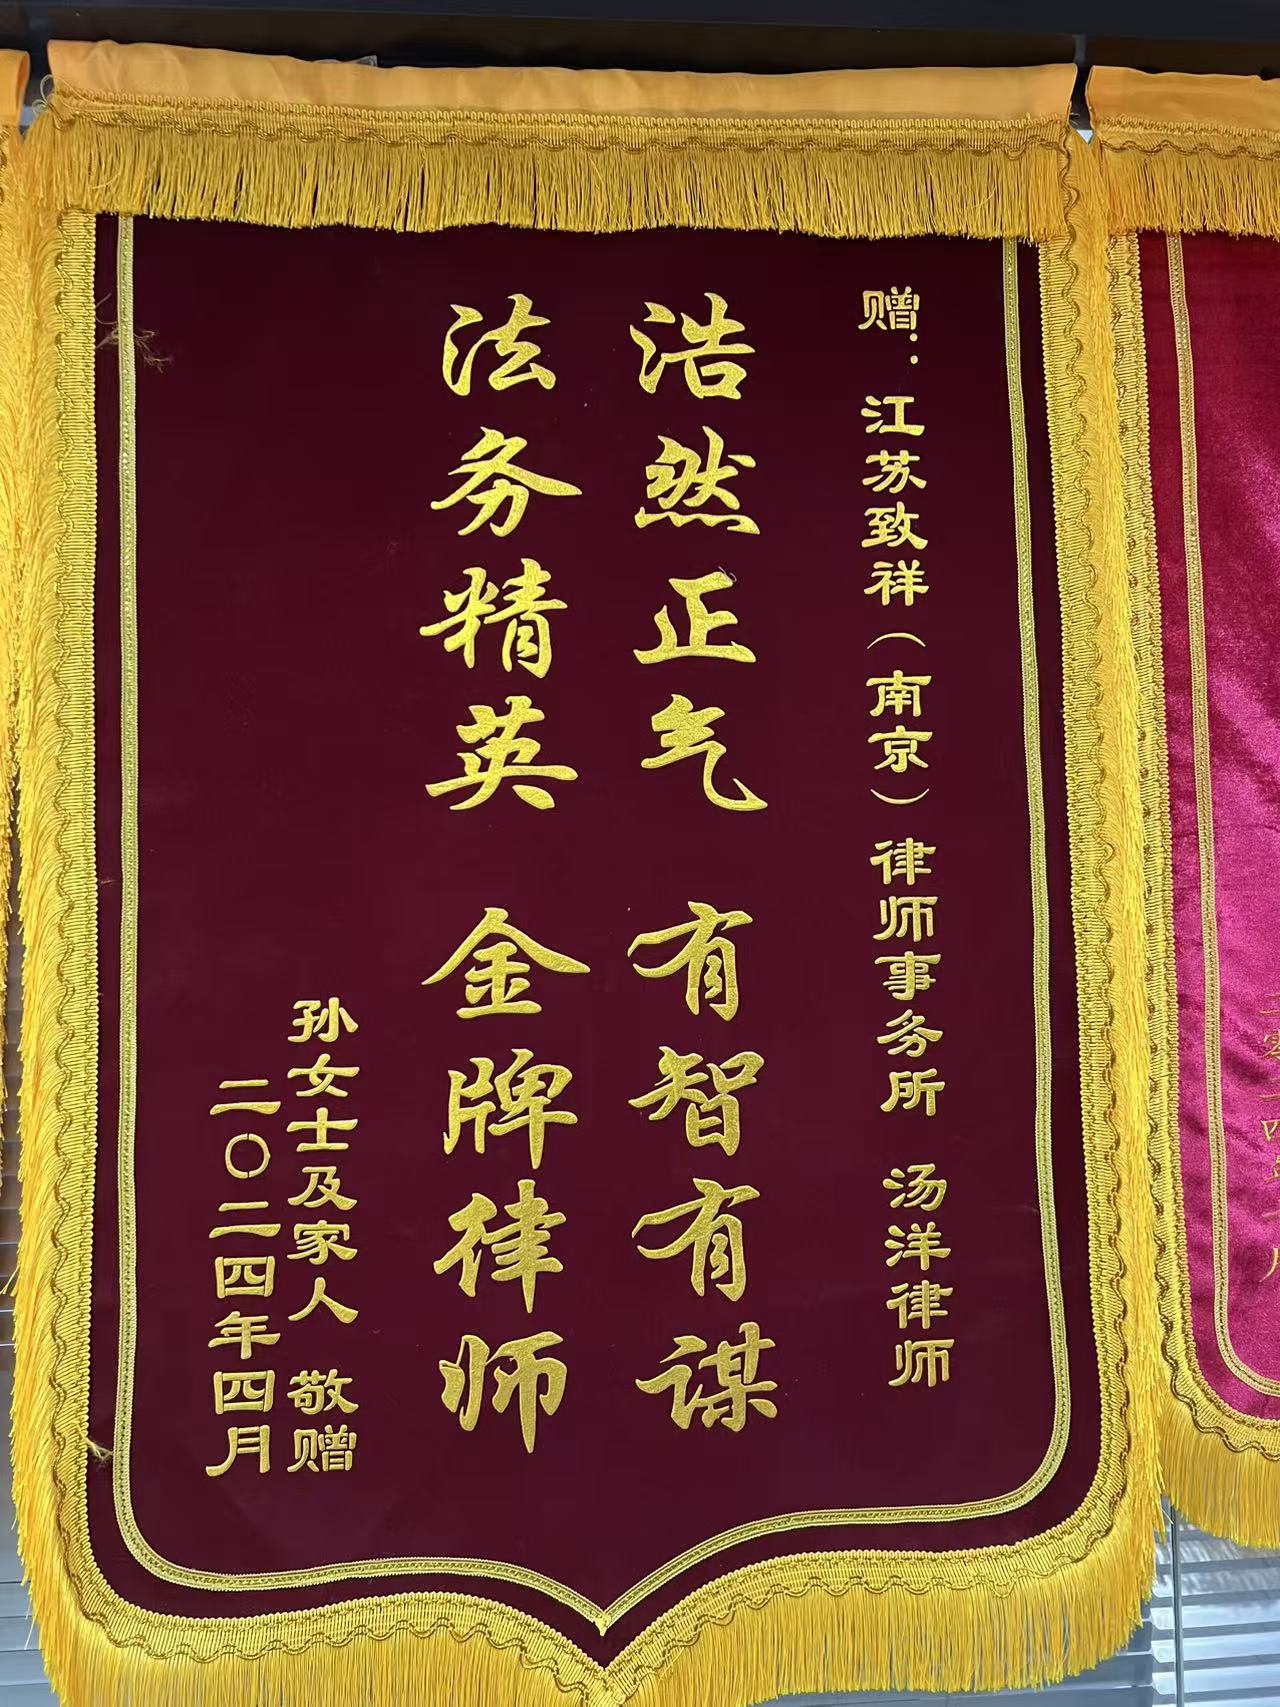 赠：江苏致祥（南京）律师事务所 汤洋律师
浩然正气 有智有谋
法务精英 金牌律师
孙女士及家人 敬赠
二〇二四年四月